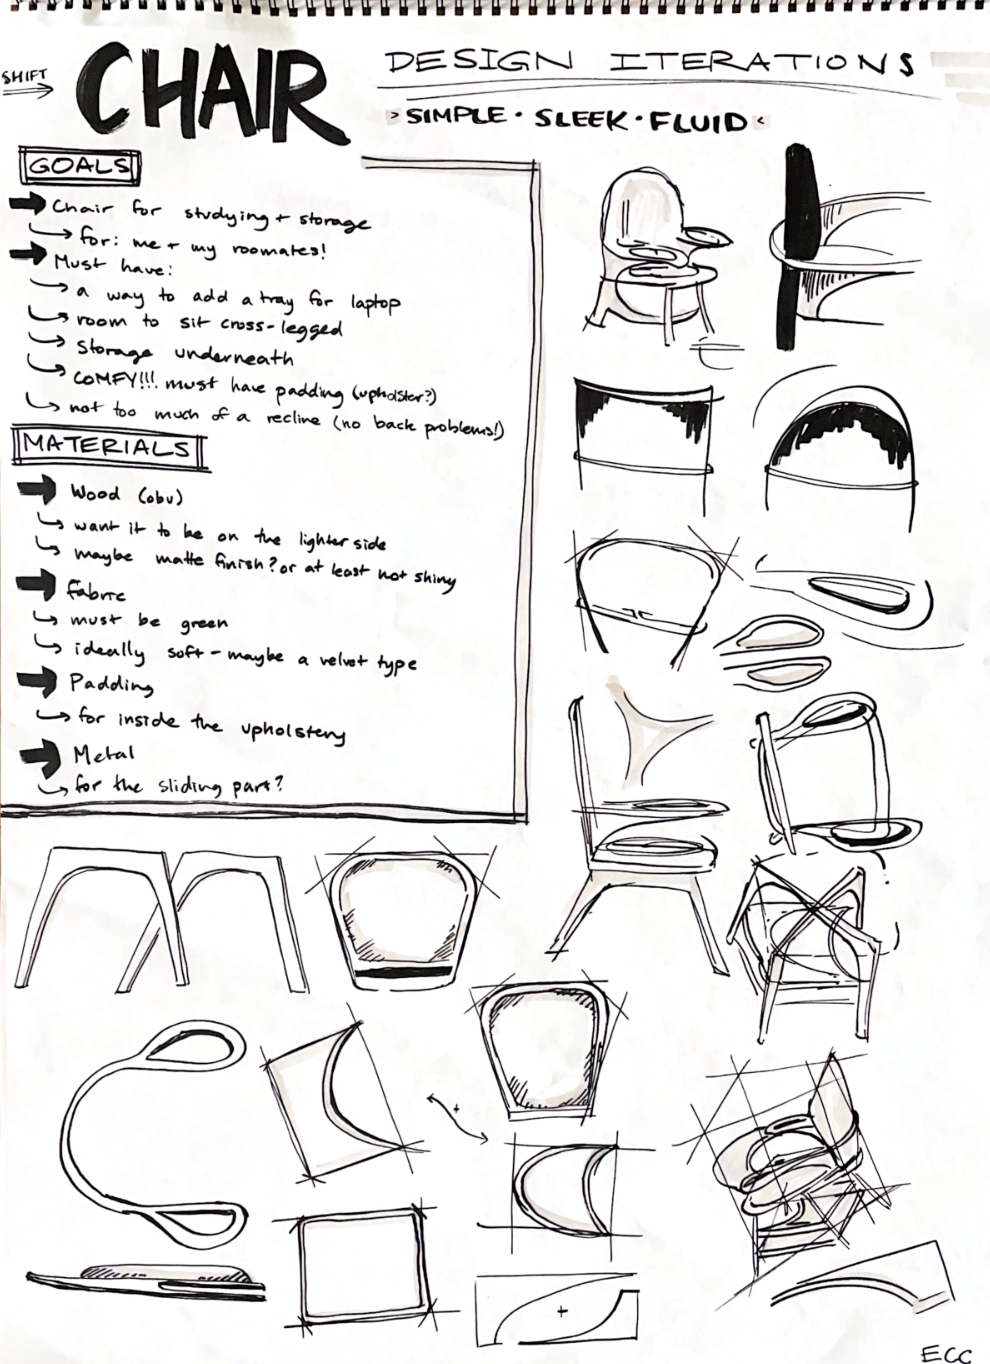 SHIFT
CHAIR
DESIGN ITERATIONS
> SIMPLE · SLEEK · FLUID <
GOALS
Chair for studying + storage
for: me + my roomates!
Must have:
a way to add a tray for laptop
room to sit cross-legged
Storage underneath
COMFY!!! must have padding (upholster?)
not too much of a recline (no back problems!)
MATERIALS
Wood (obv)
want it to be on the lighter side
maybe matte finish? or at least not shiny
Fabric
must be green
ideally soft - maybe a velvet type
Padding
for inside the upholstery
Metal
for the sliding part?
+
+
ECC